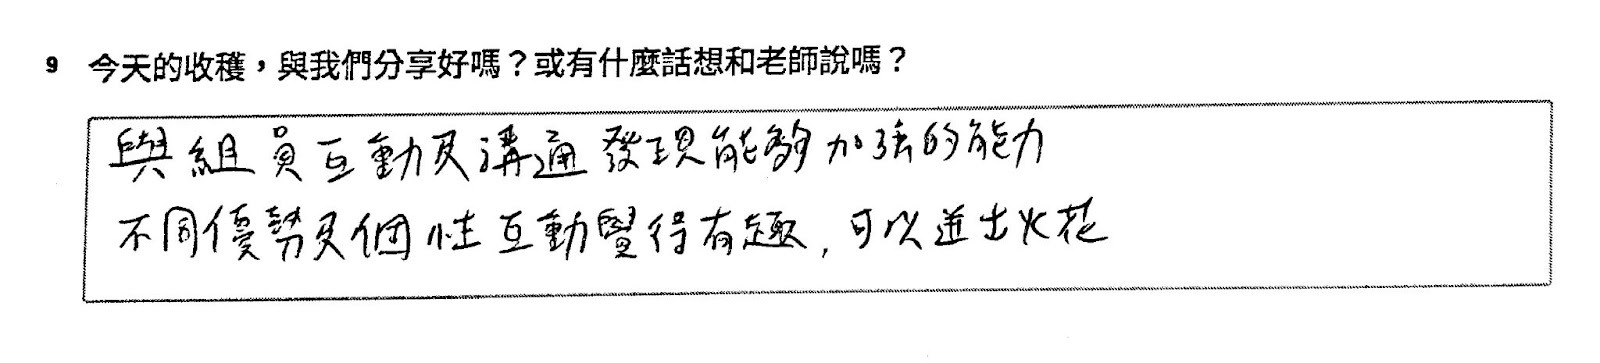 9 今天的收穫，與我們分享好嗎？或有什麼話想和老師說嗎？
與組員互動及溝通發現能夠加強的能力
不同優勢及個性互動覺得有趣，可以迸出火花